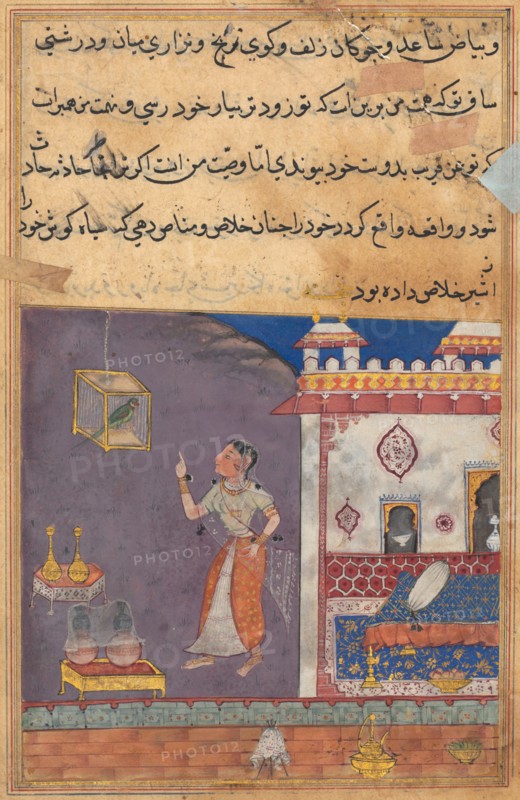 وبیاض ساعد وچوکان زلف وکوی زنخ ونزاری میان ودرشتی
ساق توکه همت من برین است که تو زود تر بیار خود رسی و نهمت من همبرانست
که تو عن قریب بدوست خود پیوندی امّا وصیّت من انست اکر ترا انجا حادثه حادث
شود و واقعه واقع کردد خود را چنان خلاص ومناص دهی که سیاه کوش خود را
از شیر خلاص داده بود
PHOTO12
PHOTO12
PHOTO12
PHOTO12
PHOTO12